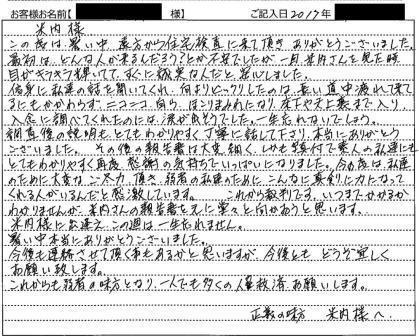 お客様お名前【 様】 ご記入日2017年
米内様
この度は、暑い中、遠方から住宅検査に来て頂き ありがとうございました。
最初は、どんな人が来るだろう?とか不安でしたが、一目 米内さんを見た時
目がキラキラ輝いてて、すぐに誠実な人だと 安心しました。
備身に私達の話を聞いてくれ、何よりビックリしたのは、長い道中 疲れて来て
るにもかかわらず、ニコニコ、自ら、ほこりまみれになり、床下や天上裏まで入り、
入念に調べてくれたのには、涙が出そうでした。一生忘れないでしょう。
調査後の説明も、とてもわかりやすく丁寧に話して下さり、本当にありがとう
ございました。 その後の報告書は大変細く、しかも写真付で素人の私達にも
とてもわかりやすく再度、感謝の気持ちでいっぱいになりました。今の世は、私達
のために大変なご尽力頂き、弱者の私達のために こんなに真剣に力になって
くれる人がいるんだと感激しています。 これから裁判です。いつまでかかるか
わかりませんが、米内さんの報告書を元に堂々と向かおうと思います。
米内様に出逢えこの週は一生忘れません。
暑い中本当にありがとうございました。
今後も連絡させて頂く事もあるかと思いますが、今後とも、どうぞ宜しく
お願い致します。
これからも弱者の味方となり、一人でも多くの人救済お願いします。
正義の味方 米内様へ.